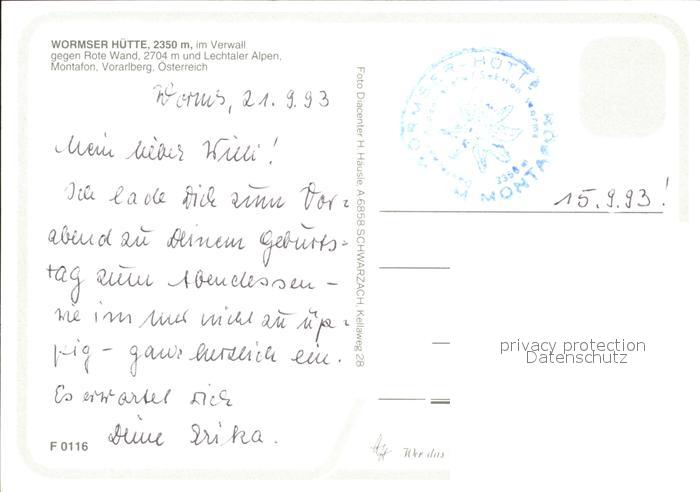 WORMSER HÜTTE, 2350 m, im Verwall
gegen Rote Wand, 2704 m und Lechtaler Alpen,
Montafon, Vorarlberg, Österreich
Worms, 21.9.93
Mein lieber Willi!
Ich lade Dich zum Vor-
abend zu Deinem Geburts-
tag zum Abendessen –
wie immer nicht zu üp-
pig – ganz herzlich ein.
Es erwartet Dich
Deine Erika.
F 0116
Foto Diacenter H. Häusle, A 6858 SCHWARZACH, Kellaweg 28
WORMSER-HÜTTE
Sektion Worms
2350 m
MONTAFON
15.9.93!
privacy protection
Datenschutz
Wer das